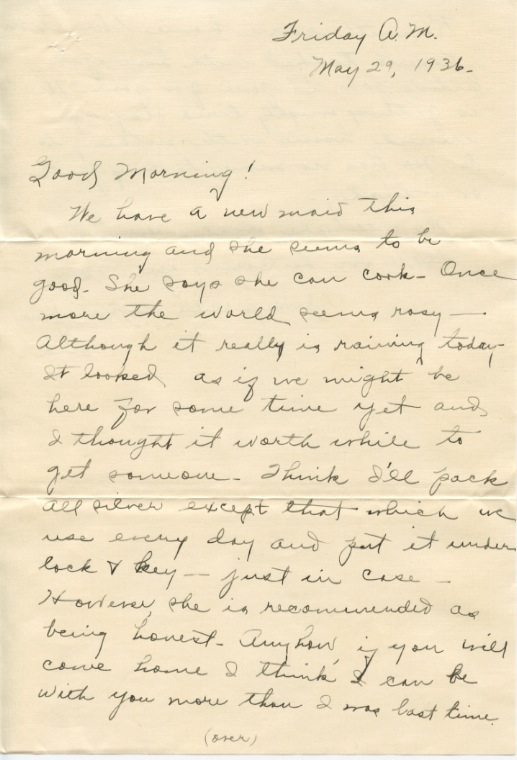 Friday A.M.
May 29, 1936.
Good Morning!
We have a new maid this
morning and she seems to be
good. She says she can cook - Once
more the world seems rosy -
Although it really is raining today.
It looked as if we might be
here for some time yet and
I thought it worth while to
get someone - Think I'll pack
all silver except that which we
use every day and put it under
lock & key - just in case -
However, she is recommended as
being honest. Anyhow if you will
come home I think I can be
with you more than I was last time.
(over)